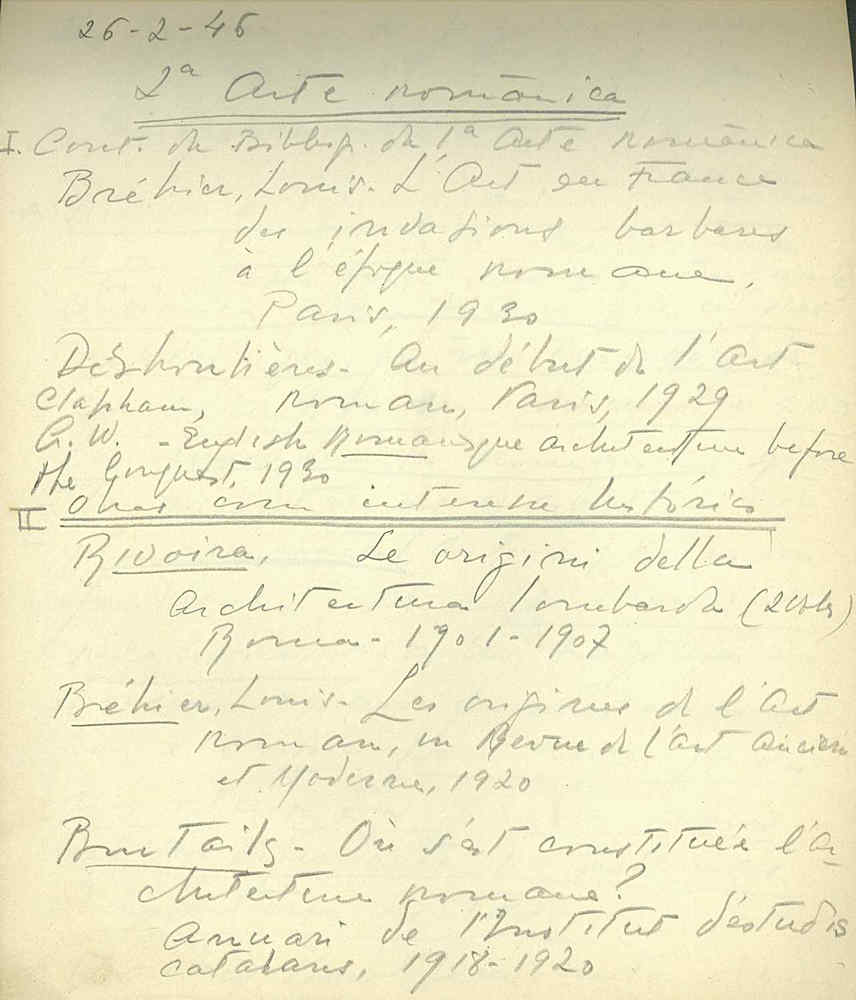 26-2-46
2ª Arte românica
I. Cont. da Bibliogr. da 1ª Arte românica
Bréhier, Louis - L'Art en France
des invasions barbares
à l'époque romane,
Paris, 1930
Déshoulières - Au début de l'Art
Clapham, roman, Paris, 1929
A. W. - English Romanesque architecture before
the Conquest, 1930
II Obras com interesse histórico
Rivoira, Le origini della
Architettura lombarda (2 vols)
Roma - 1901-1907
Bréhier, Louis - Les origines de l'Art
roman, in Revue de l'art Ancien
et Moderne, 1920
Brutails - Où s'est constituée l'ar-
chitecture romane?
Anuari de l'Institut d'estudis
catalans, 1918-1920